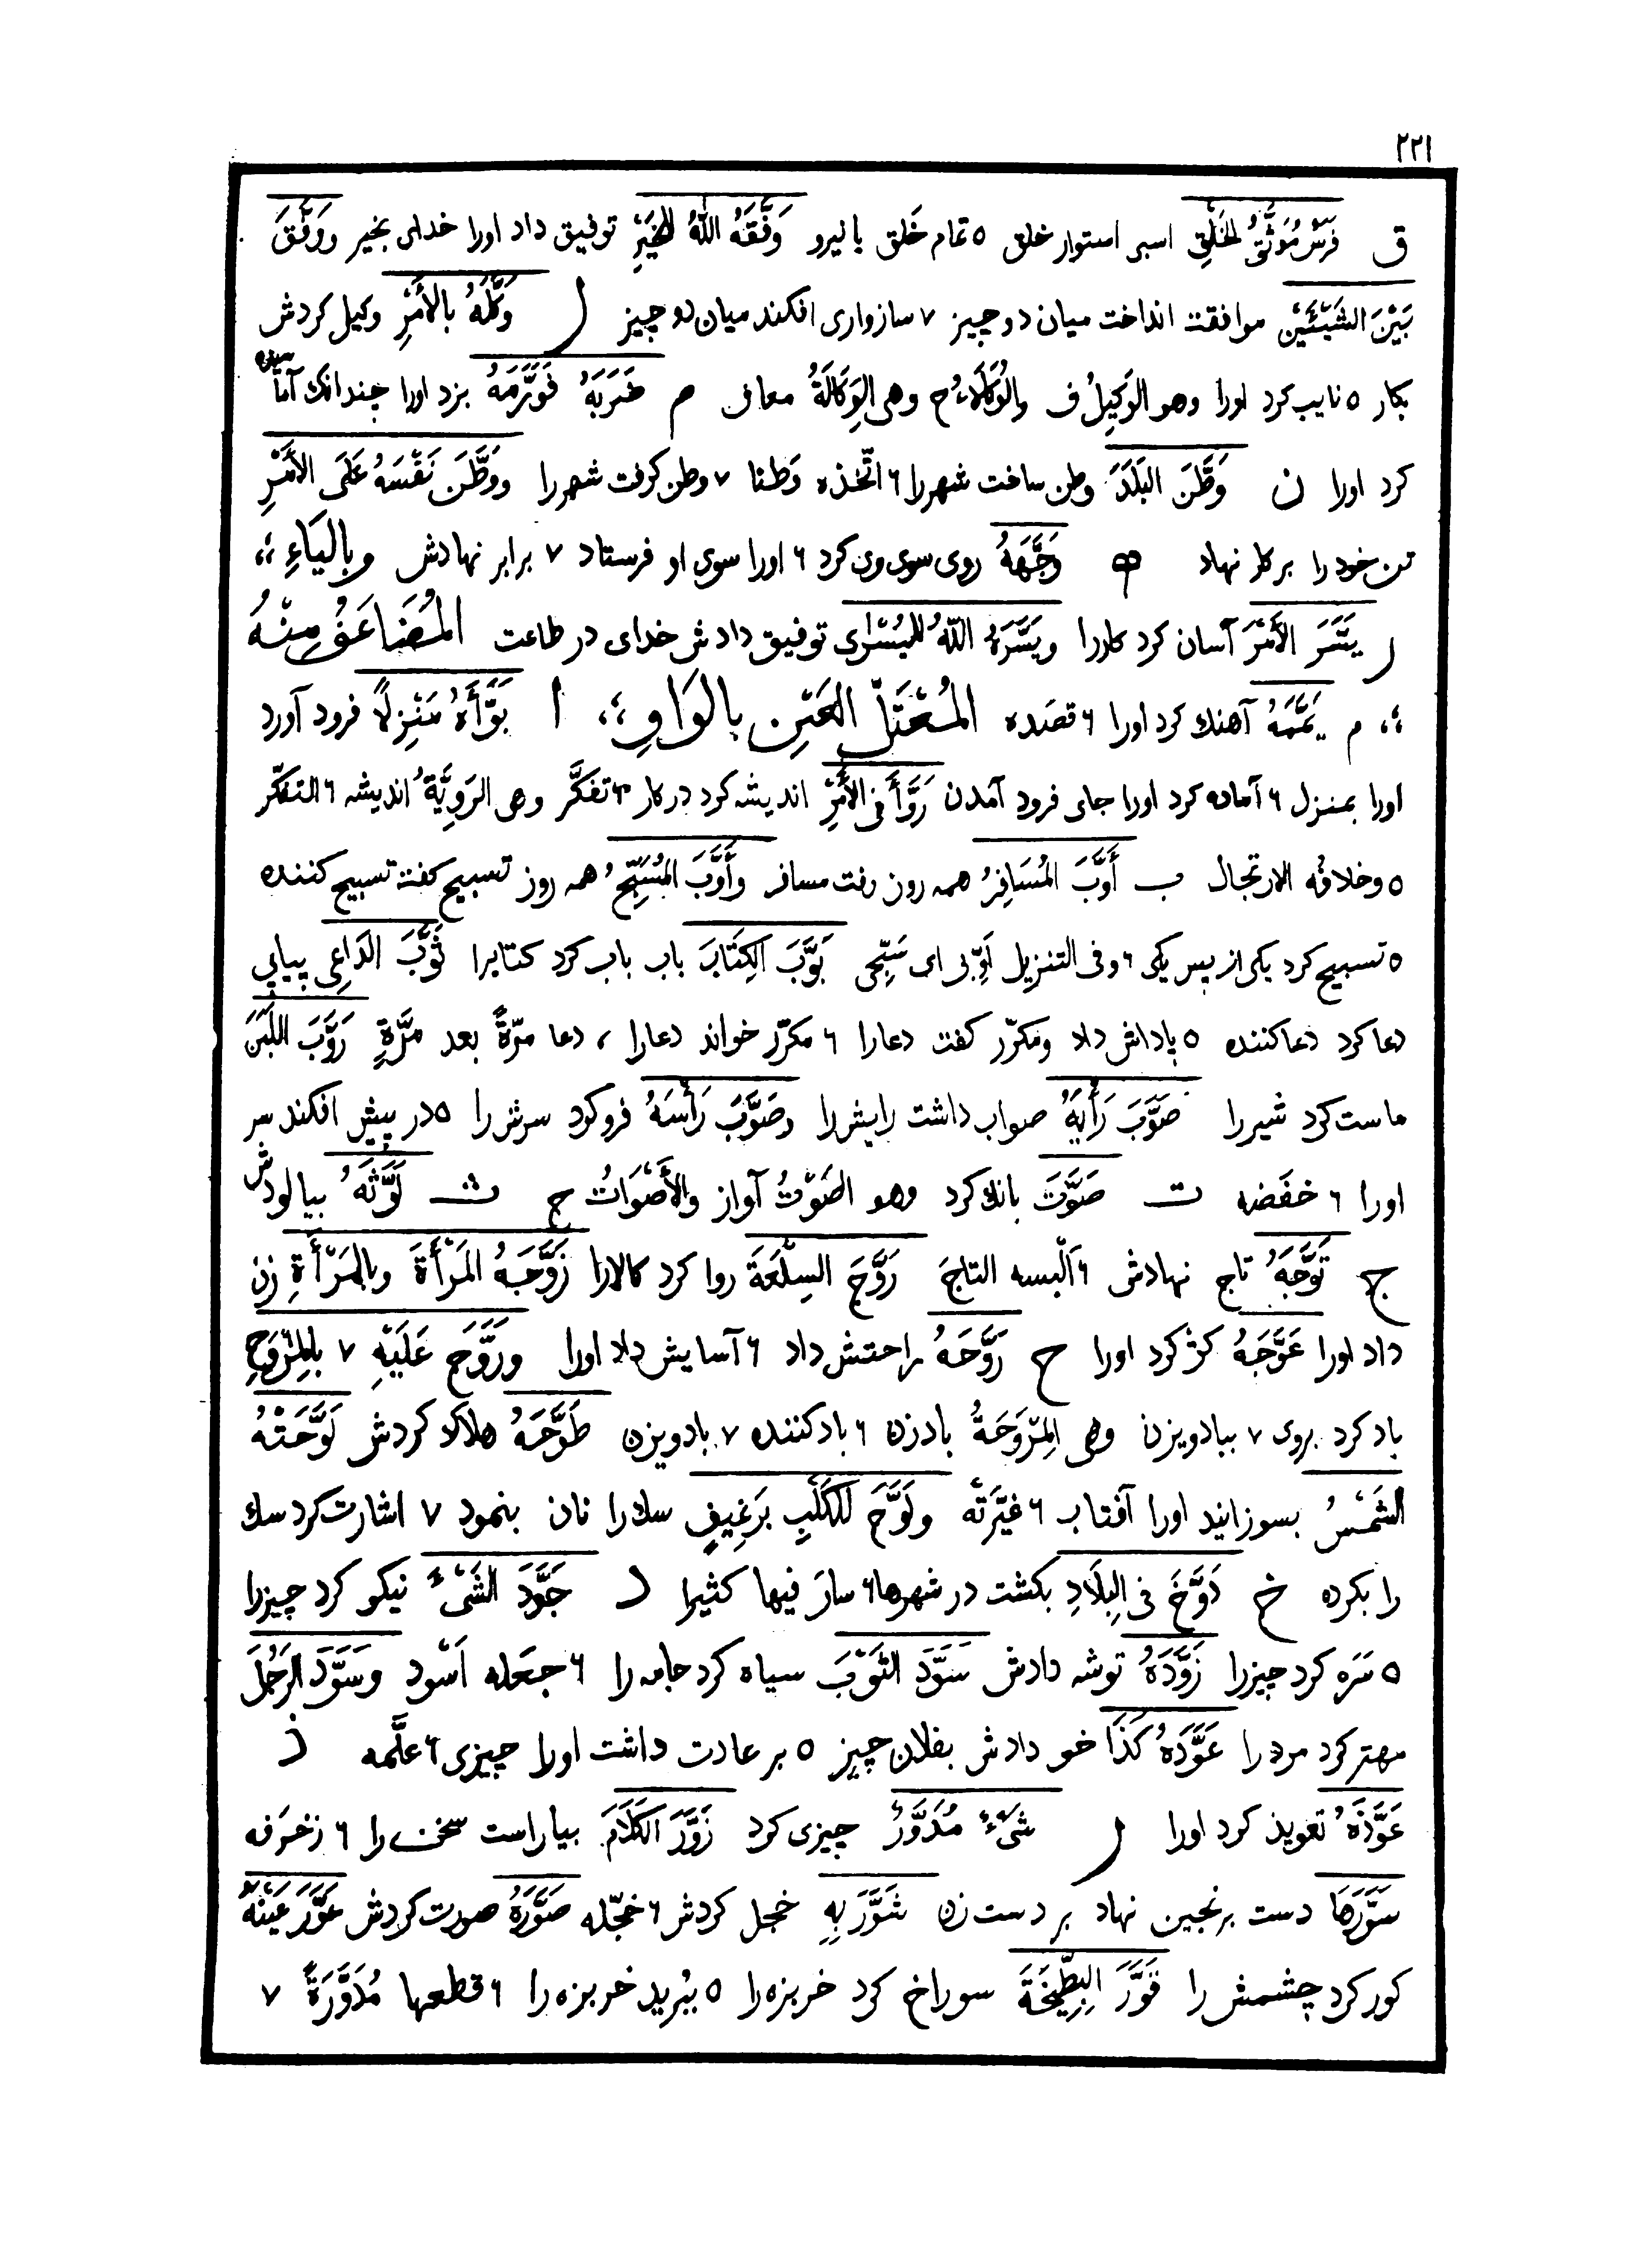 ٢٢١
ق فَرَسٌ مُوَثَّقُ الخَلْقِ اسبی استوار خلق ٥ تمام خَلق با نیرو وَفَّقَهُ اللّٰهُ لِلْخَيْرِ توفیق داد اورا خدای بخیر وَوَفَّقَ
بَيْنَ الشَّيْئَيْنِ موافقت انداخت میان دو چیز ٧ سازواری افکند میان دو چیز ل وَكَّلَهُ بِالأَمْرِ وکیل کردش
بکار ٥ نایب کرد اورا وهو الوَكِيلُ ف والوُكَلَاءُ ج وهی الوَكَالَةُ معانی م ضَرَبَهُ فَوَرَّمَهُ بزد اورا چندانک آماسیده
کرد اورا ن وَطَّنَ البَلَدَ وطن ساخت شهررا ٦ اتّخذه وَطنا ٧ وطن کرفت شهررا وَوَطَّنَ نَفْسَهُ عَلَى الأَمْرِ
تن خود را بر کار نهاد ه وَجَّهَهُ روی سوی وی کرد ٦ اورا سوی او فرستاد ٧ برابر نهادش وبِاليَاءِ ؛،
ر يَسَّرَ الأَمْرَ آسان کرد کاررا ويَسَّرَهُ اللّٰهُ لِلْيُسْرَى توفیق دادش خدای در طاعت المُضَاعَفُ مِنْهُ
؛، م يَمَّمَهُ آهنك کرد اورا ٦ قصَده المُعْتَلُّ العَيْنِ بِالوَاوِ ؛، ا بَوَّأَهُ مَنْزِلًا فرود آورد
اورا بمنزل ٦ آماده کرد اورا جای فرود آمدن رَوَّأَ فِي الأَمْرِ اندیشه کرد در کار ٦ تفكَّر وهی الرَوِيَّةُ اندیشه ٦ التفكّر
٥ وخلافُه الارتجال ب أَوَّبَ المُسَافِرُ همه روز رفت مسافر وأَوَّبَ المُسَبِّحُ همه روز تسبیح کفت تسبیح کننده
٥ تسبیح کرد یکی از پس یکی ٦ وفی التنزیل أَوِّبِی ای سَبِّحِی بَوَّبَ الكِتَابَ باب باب کرد کتابرا ثَوَّبَ الدَاعِي پیاپی
دعا کرد دعا کننده ٥ پاداش داد ومکرّر کفت دعارا ٦ مکرّر خواند دعارا ، دعا مرّةً بعد مرَّةٍ رَوَّبَ اللَبَنَ
ماست کرد شیررا صَوَّبَ رَأْيَهُ صواب داشت رایش را وصَوَّبَ رَأْسَهُ فرو کرد سرش را ٥ در پیش افکند سر
اورا ٦ خفَضه ت صَوَّتَ بانك کرد وهو الصَوْتُ آواز والأَصْوَاتُ ج ث لَوَّثَهُ بیالودش
ج تَوَّجَهُ تاج نهادش ٦ اَلْبسه التاجَ رَوَّجَ السِلْعَةَ روا کرد کالارا زَوَّجَهُ المَرْأَةَ وبِالمَرْأَةِ زن
داد اورا عَوَّجَهُ کژ کرد اورا ح رَوَّحَهُ راحتش داد ٦ آسایش داد اورا ورَوَّحَ عَلَيْهِ ٧ بِالمِرْوَحِ
باد کرد بروی ٧ ببادویزن وهی المِرْوَحَةُ بادزن ٦ باد کننده ٧ بادویزن طَوَّحَهُ هلاك کردش لَوَّحَتْهُ
الشَمْسُ بسوزانید اورا آفتاب ٦ غیَّرتْه ولَوَّحَ لِلكَلْبِ بِرَغِيفٍ سك را نان بنمود ٧ اشارت کرد سك
را بکرده خ دَوَّخَ فِي البِلَادِ بکشت در شهرها ٦ سارَ فیها کثیرا د جَوَّدَ الشَيْءَ نیکو کرد چیزرا
٥ سَره کرد چیزرا زَوَّدَهُ توشه دادش سَوَّدَ الثَوْبَ سیاه کرد جامه را ٦ جعَله اَسْود وسَوَّدَ الرَجُلَ
مهتر کرد مرد را عَوَّدَهُ كَذَا خو دادش بفلان چیز ٥ بر عادت داشت اورا چیزی ٦ علَّمه ذ
عَوَّذَهُ تعویذ کرد اورا ر شَيْءٌ مُدَوَّرٌ چیزی کرد زَوَّرَ الكَلَامَ بیاراست سخن را ٦ زخرَفه
سَوَّرَهَا دست برنجین نهاد بر دست زن شَوَّرَ بِهِ خجل کردش ٦ خجّله صَوَّرَهُ صورت کردش عَوَّرَ عَيْنَهُ
کور کرد چشمش را قَوَّرَ البِطِّيخَةَ سوراخ کرد خربزه را ٥ ببُرید خربزه را ٦ قطعها مُدَوَّرَةً ٧